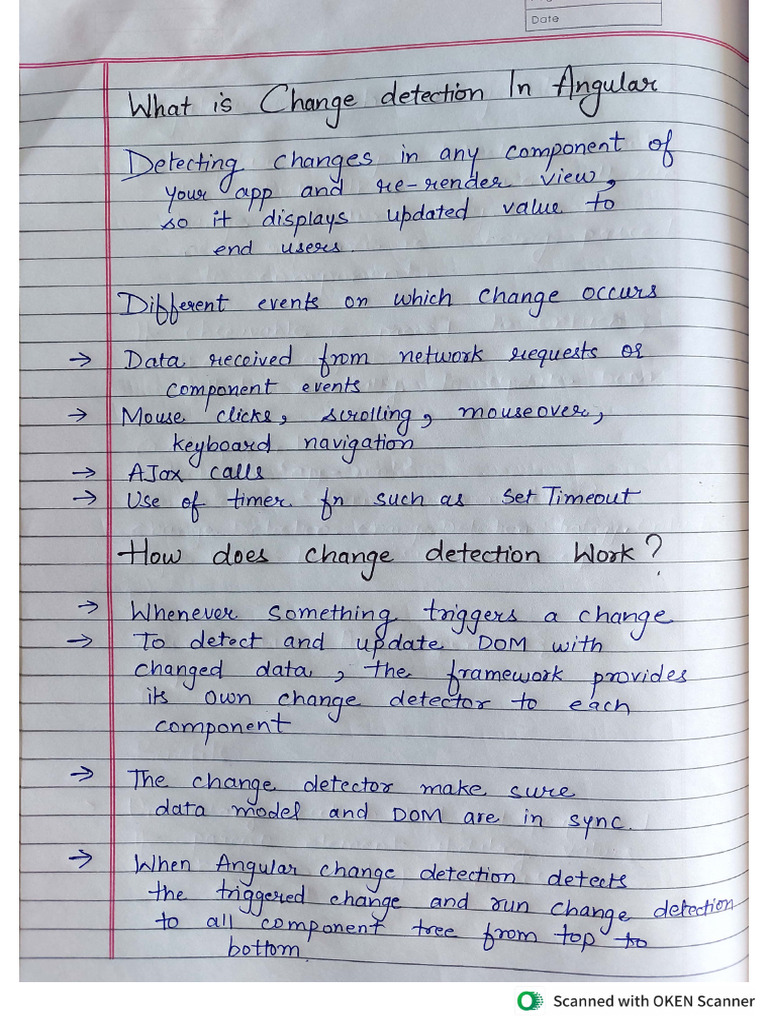 Date
What is Change detection In Angular
Detecting changes in any component of
your app and re-render view,
so it displays updated value to
end users.
Different events on which change occurs
→ Data received from network requests or
component events
→ Mouse clicks, scrolling, mouseover,
keyboard navigation
→ AJax calls
→ Use of timer fn such as Set Timeout
How does change detection Work?
→ Whenever something triggers a change
→ To detect and update DOM with
changed data, the framework provides
its own change detector to each
component
→ The change detector make sure
data model and DOM are in sync.
→ When Angular change detection detects
the triggered change and run change detection
to all component tree from top to
bottom.
Scanned with OKEN Scanner